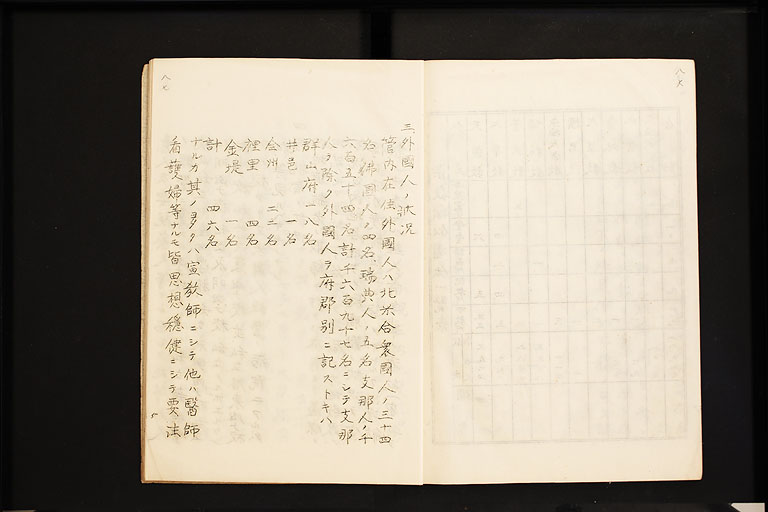 三、外國人ノ狀況
管內在住外國人ハ北米合衆國人ノ三十四
名佛國人ノ四名、瑞典人ノ五名支那人ノ千
六百五十四名計千六百九十七名ニシテ支那
人ヲ除ク外國人ヲ府郡別ニ記ストキハ
群山府 一八名
井邑 一名
全州 二二名
裡里 四名
金堤 一名
計 四六名
ナルカ其ノ多クハ宣敎師ニシテ他ハ醫師
看護婦等ナルモ皆思想穩健ニシテ要注